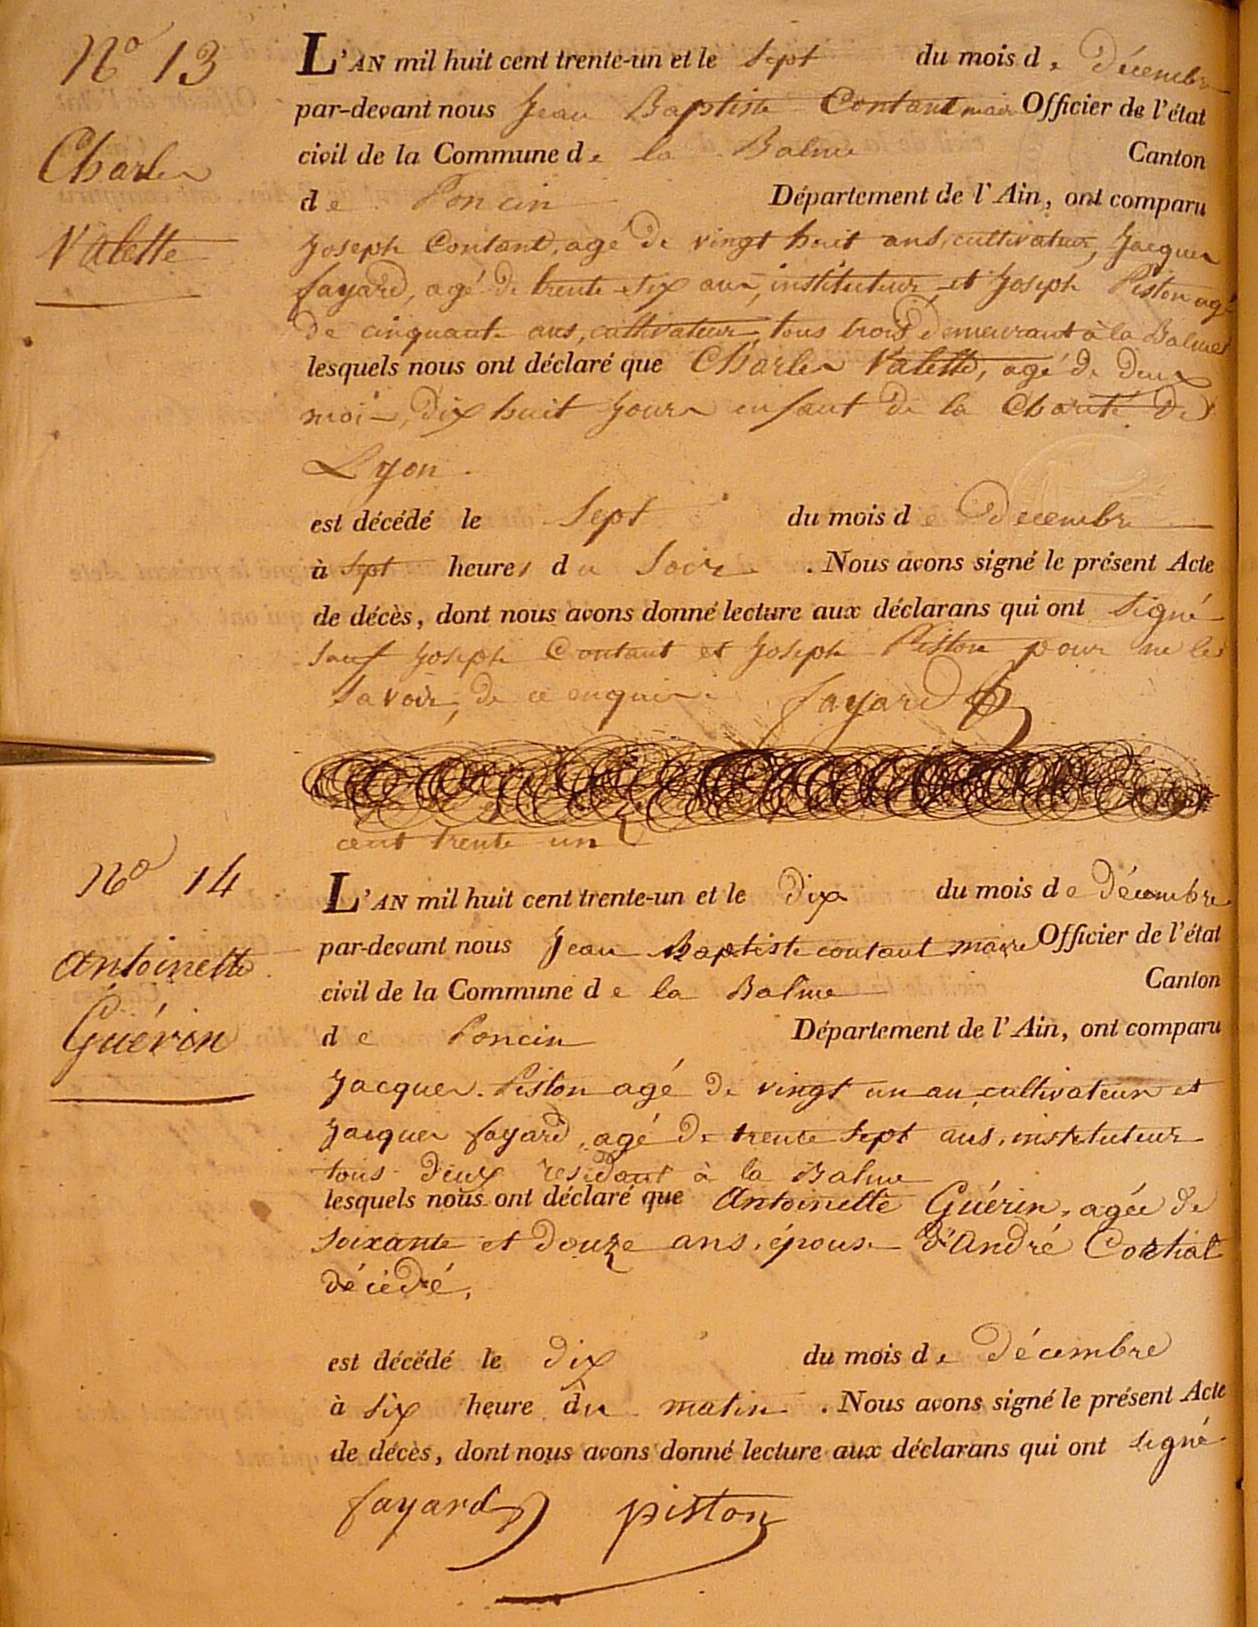 N° 13
Charles
Valette
L'AN mil huit cent trente-un et le sept du mois de décembre
par-devant nous Jean Baptiste Contant maire Officier de l'état
civil de la Commune de la Balme Canton
de Poncin Département de l'Ain, ont comparu
Joseph Contant, agé de vingt huit ans, cultivateur, Jacques
fayard, agé de trente six ans, instituteur, et Joseph Piston agé
de cinquante ans, cultivateur, tous trois demeurant à la Balme
lesquels nous ont déclaré que Charles Valette, agé de deux
mois, dix huit jours enfant de la Charité de
Lyon.
est décédé le sept du mois de décembre
à sept heures du soir . Nous avons signé le présent Acte
de décès, dont nous avons donné lecture aux déclarans qui ont signé
sauf Joseph Contant et Joseph Piston pour ne le
savoir, de ce enquis. fayard
cent trente un
N° 14
antoinette
Guérin
L'AN mil huit cent trente-un et le dix du mois de décembre
par-devant nous Jean Baptiste contant maire Officier de l'état
civil de la Commune de la Balme Canton
de Poncin Département de l'Ain, ont comparu
Jacques Piston agé de vingt un an cultivateur et
Jacques fayard, agé de trente sept ans, instituteur
tous deux résidant à la Balme
lesquels nous ont déclaré que antoinette Guérin, agée de
soixante et douze ans, épouse d'André Cortial
décédé,
est décédé le dix du mois de décembre
à six heure du matin . Nous avons signé le présent Acte
de décès, dont nous avons donné lecture aux déclarans qui ont signé
fayard piston